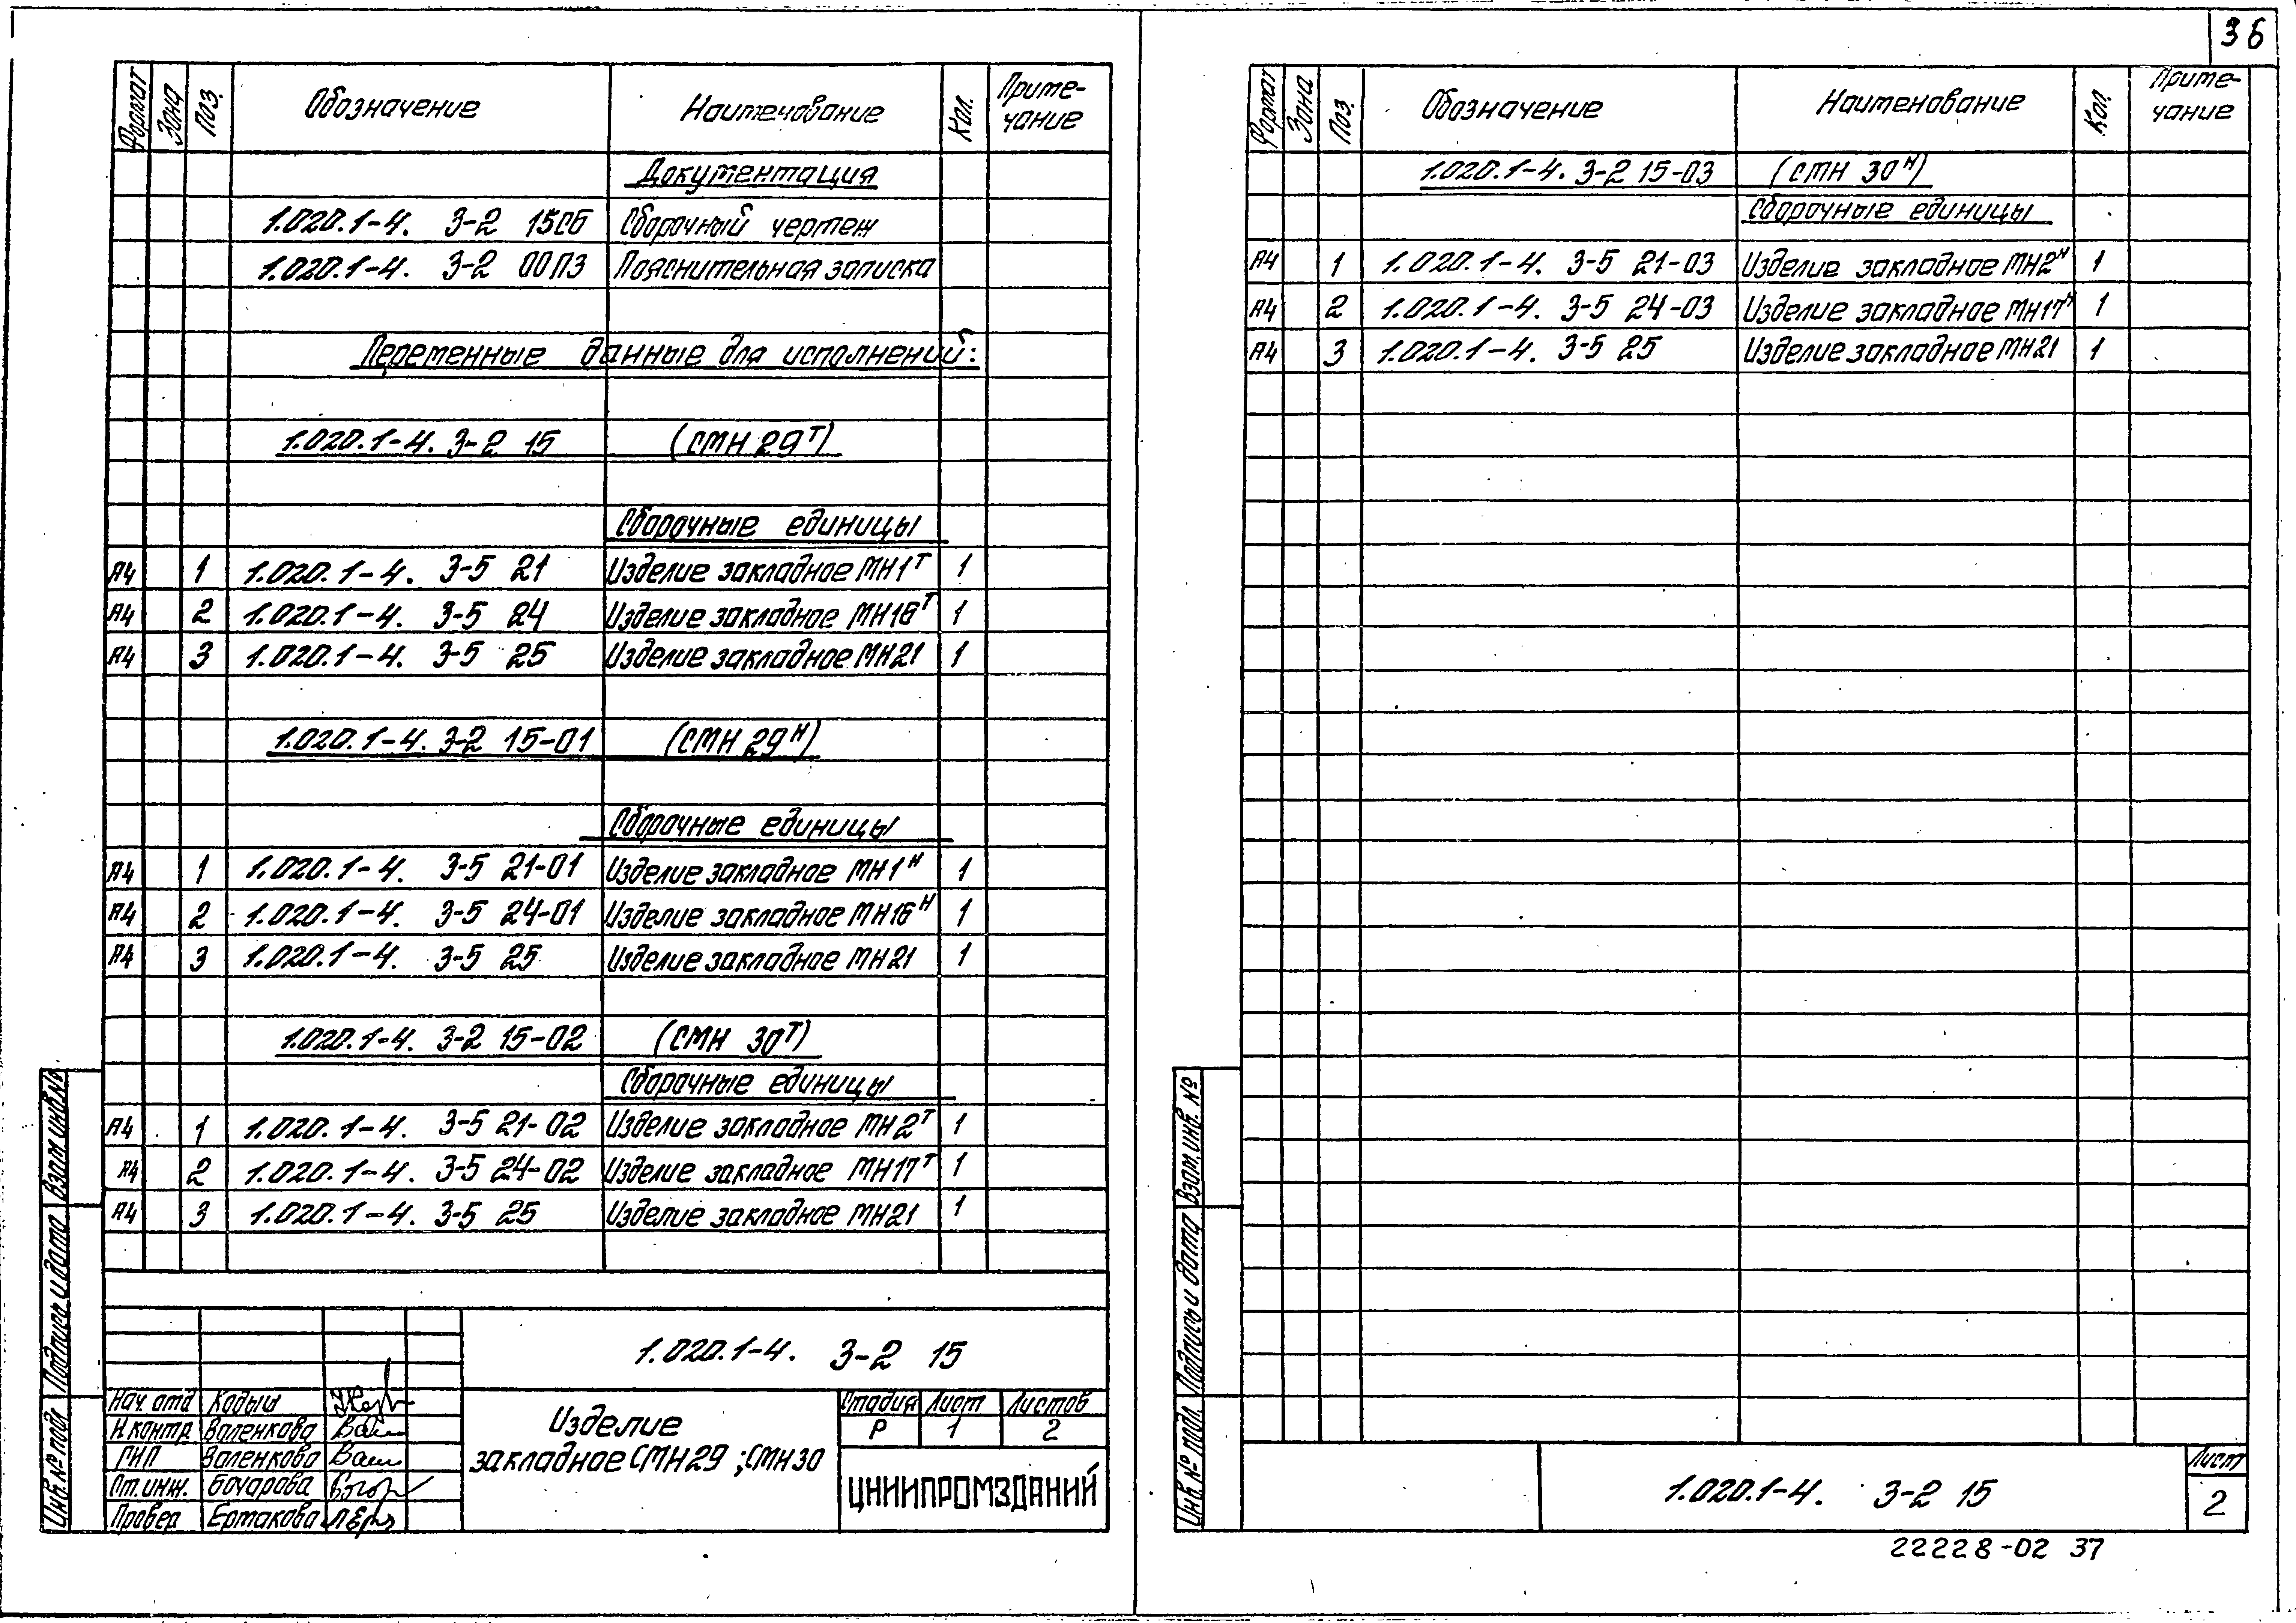 36
Формат Зона Поз. Обозначение Наименование Кол. Приме-
чание
Документация
1.020.1-4. 3-2 15СБ Сборочный чертеж
1.020.1-4. 3-2 00ПЗ Пояснительная записка
Переменные данные для исполнений:
1.020.1-4. 3-2 15 (СМН 29ᵀ)
Сборочные единицы
А4 1 1.020.1-4. 3-5 21 Изделие закладное МН1ᵀ 1
А4 2 1.020.1-4. 3-5 24 Изделие закладное МН16ᵀ 1
А4 3 1.020.1-4. 3-5 25 Изделие закладное МН21 1
1.020.1-4. 3-2 15-01 (СМН 29ᴴ)
Сборочные единицы
А4 1 1.020.1-4. 3-5 21-01 Изделие закладное МН1ᴴ 1
А4 2 1.020.1-4. 3-5 24-01 Изделие закладное МН16ᴴ 1
А4 3 1.020.1-4. 3-5 25 Изделие закладное МН21 1
1.020.1-4. 3-2 15-02 (СМН 30ᵀ)
Сборочные единицы
А4 1 1.020.1-4. 3-5 21-02 Изделие закладное МН2ᵀ 1
А4 2 1.020.1-4. 3-5 24-02 Изделие закладное МН17ᵀ 1
А4 3 1.020.1-4. 3-5 25 Изделие закладное МН21 1
Взам инв.№
Подпись и дата
Инв.№ подл
1.020.1-4. 3-2 15
Нач. отд Кодыш
Н.контр Валенкова
ГИП Валенкова
Ст.инж. Бочарова
Провер Ермакова
Изделие
закладное СМН29 ; СМН30
Стадия Лист Листов
Р 1 2
ЦНИИПРОМЗДАНИЙ
Формат Зона Поз. Обозначение Наименование Кол. Приме-
чание
1.020.1-4. 3-2 15-03 (СМН 30ᴴ)
Сборочные единицы
А4 1 1.020.1-4. 3-5 21-03 Изделие закладное МН2ᴴ 1
А4 2 1.020.1-4. 3-5 24-03 Изделие закладное МН17ᴴ 1
А4 3 1.020.1-4. 3-5 25 Изделие закладное МН21 1
Взам.инв. №
Подпись и дата
Инв.№ подл.
1.020.1-4. 3-2 15
Лист
2
22228-02 37